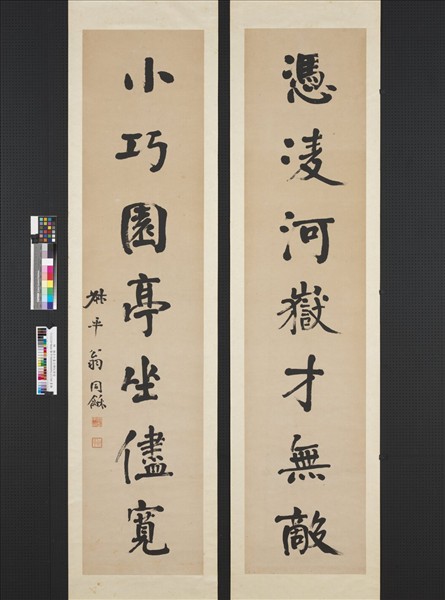 憑淩河嶽才無敵
小巧園亭坐儘寬
叔平翁同龢